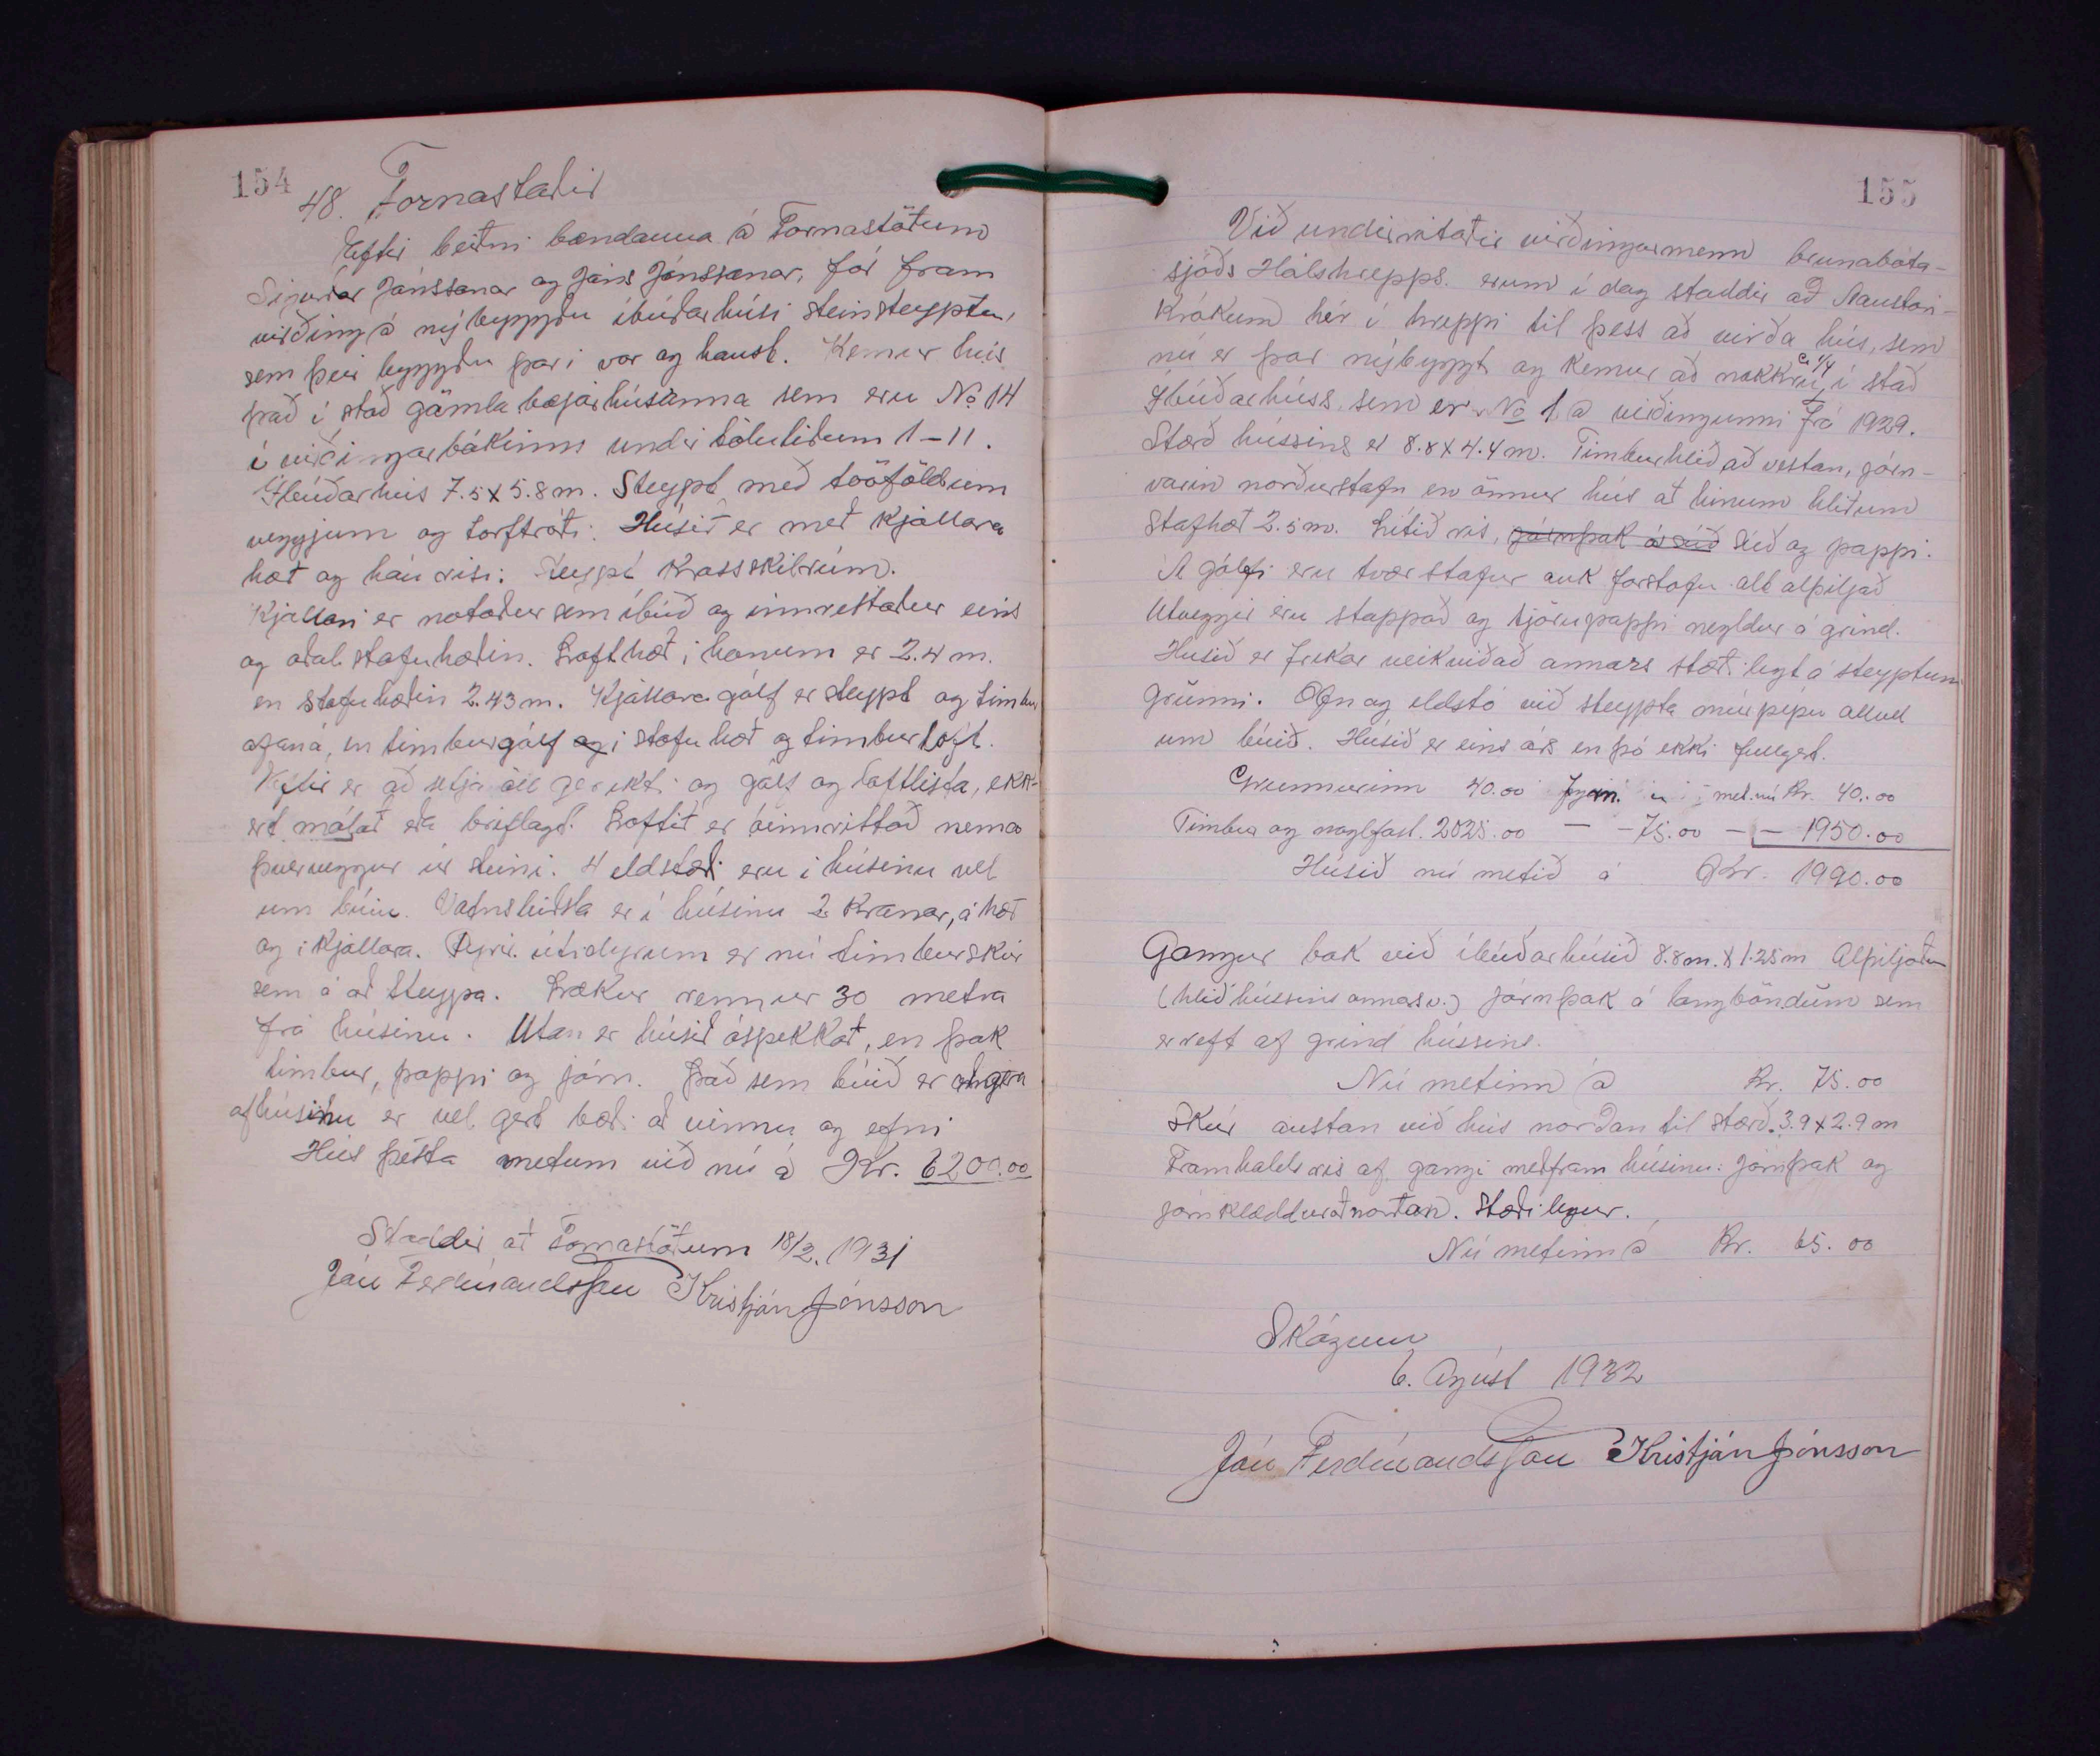 154
48. Fornastaðir
Eftir beiðni bændanna á Fornastöðum
Sigurðar Jónssonar og Jóns Jónssonar, fór fram
virðing á nýbyggðu íbúðarhúsi steinsteyptu,
sem þeir byggðu þar í vor og haust. Kemur hús
það í stað gömlu bæjarhúsanna sem eru No 14
í virðingarbókinni undir töluliðum 1-11.
Íbúðarhús 7.5 x 5.8 m. Steypt með tvöföldum
veggjum og torftróði. Húsið er með kjallara
hæð og háu risi: Steypt krossskilrúm.
Kjallari er notaður sem íbúð og innréttaður eins
og aðal stofuhæðin. Lofthæð í honum er 2.4 m.
en stofuhæðin 2.43 m. Kjallaragólf er steypt og timbur
ofaná, en timburgólf í stofuhæð og timburloft.
Eftir er að setja öll gerikti og gólf og loftlista, ekk-
ert málað eða veggfóðrað. Loftið er óinnréttað nema
þverveggur úr steini. 4 eldstæði eru í húsinu vel
um búin. Vatnsleiðsla er í húsinu 2 kranar, á hæð
og í kjallara. Fyrir útidyrum er nú timburskúr
sem á að steypa. Lækur rennur 30 metra
frá húsinu. Utan er húsið óspekkað, en þak
timbur, pappi og járn. Það sem búið er að gera
af húsinu er vel gert bæði að vinnu og efni
Hús þetta metum við nú á Kr. 6200.00
Staddir at Fornastöðum 18/2. 1931
Jón Ferdinandsson Kristján Jónsson
155
Við undirritaðir virðingarmenn brunabóta-
sjóðs Hálshrepps. erum í dag staddir að Austari-
Krókum hér í hreppi til þess að virða hús, sem
nú er þar nýbyggt og kemur að nokkru ca 1/4 í stað
Íbúðarhúss, sem er No 1 á virðingunni frá 1929.
Stærð hússins er 8.8 x 4.4 m. Timburhlið að vestan, járn-
varin norðurstafn en önnur hús at hinum hliðum
Stafhæð 2.5 m. Lítið ris, járnþak á súð Súð og pappi.
Á gólfi eru tvær stofur auk forstofu allt alþiljað
Útveggir eru stoppað og tjörupappi negldur á grind.
Húsið er frekar veikviðað annars stæðilegt á steyptum
grunni. Ofn og eldstó við steypta múrpípu allvel
um búið. Húsið er eins árs en þó ekki fullgert.
Grunnurinn 40.00 met. nú Kr. 40.00
Timbur og naglfast. 2025.00 — - 75.00 - - 1950.00
Húsið nú metið á Kr. 1990.00
Gangur bak við íbúðarhúsið 8.8 m. x 1.25 m Alþiljaður
(hlið hússins annars v.) járnþak á langböndum sem
er reft af grind hússins.
Nú metinn á Kr. 75.00
Skúr austan við hús norðan til stærð. 3.9 x 2.9 m
Framhalds ris af gangi meðfram húsinu: Járnþak og
járnklæddur at norðan. Stæðilegur.
Nú metinn á Kr. 65.00
Skógum
6. Ágúst 1932
Jón Ferdinandsson Kristján Jónsson